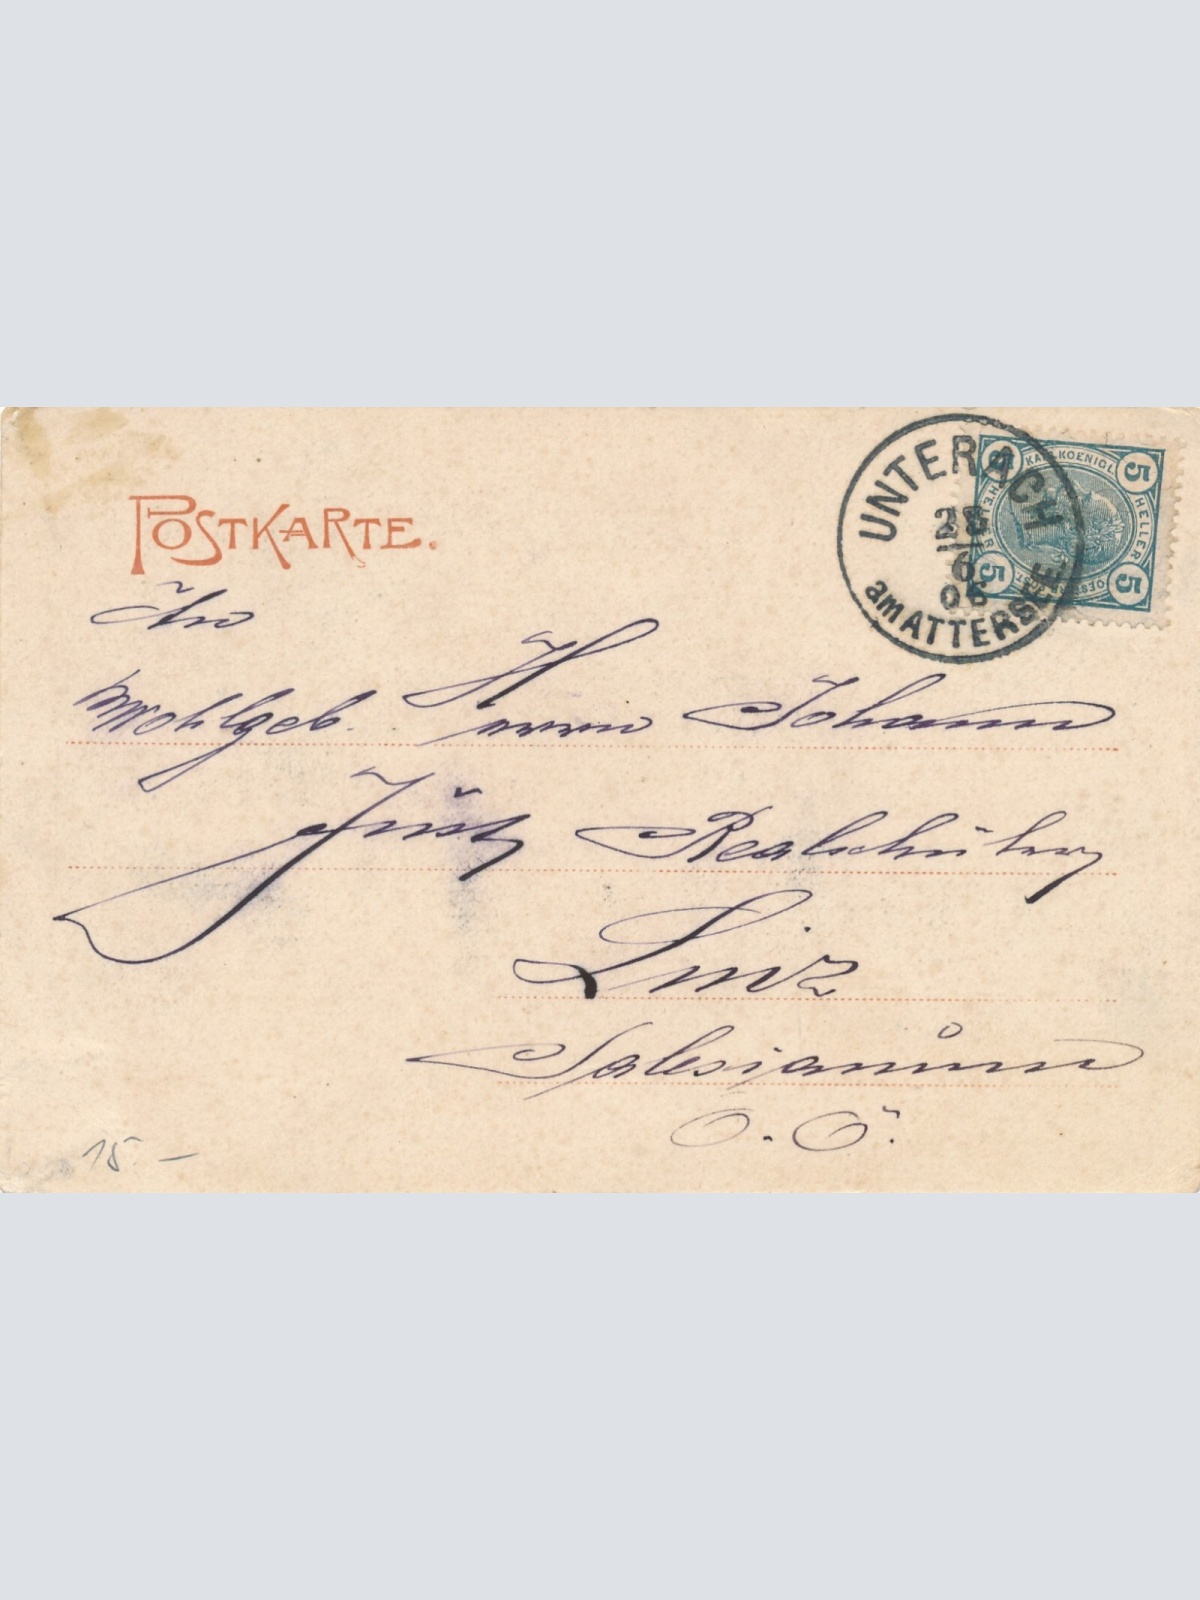 POSTKARTE.
UNTERACH
6
06
am ATTERSEE
KAIS. KOENIGL.
5 HELLER 5
5 HELLER 5
An
Wohlgeb. Herrn Johann
Just, Realschüler,
Linz
Salesianum
O. Ö.
15 —